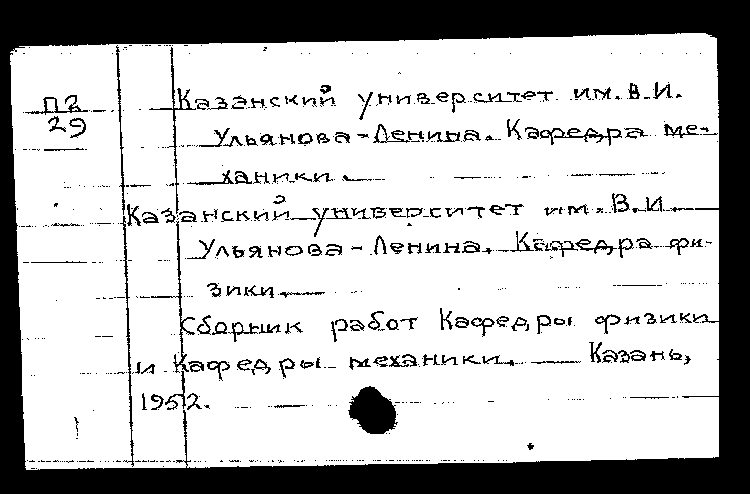 П2
29
Казанский университет им. В.И.
Ульянова-Ленина. Кафедра ме-
ханики.
Казанский университет им. В.И.
Ульянова-Ленина. Кафедра фи-
зики.
Сборник работ Кафедры физики
и Кафедры механики. — Казань,
1952.